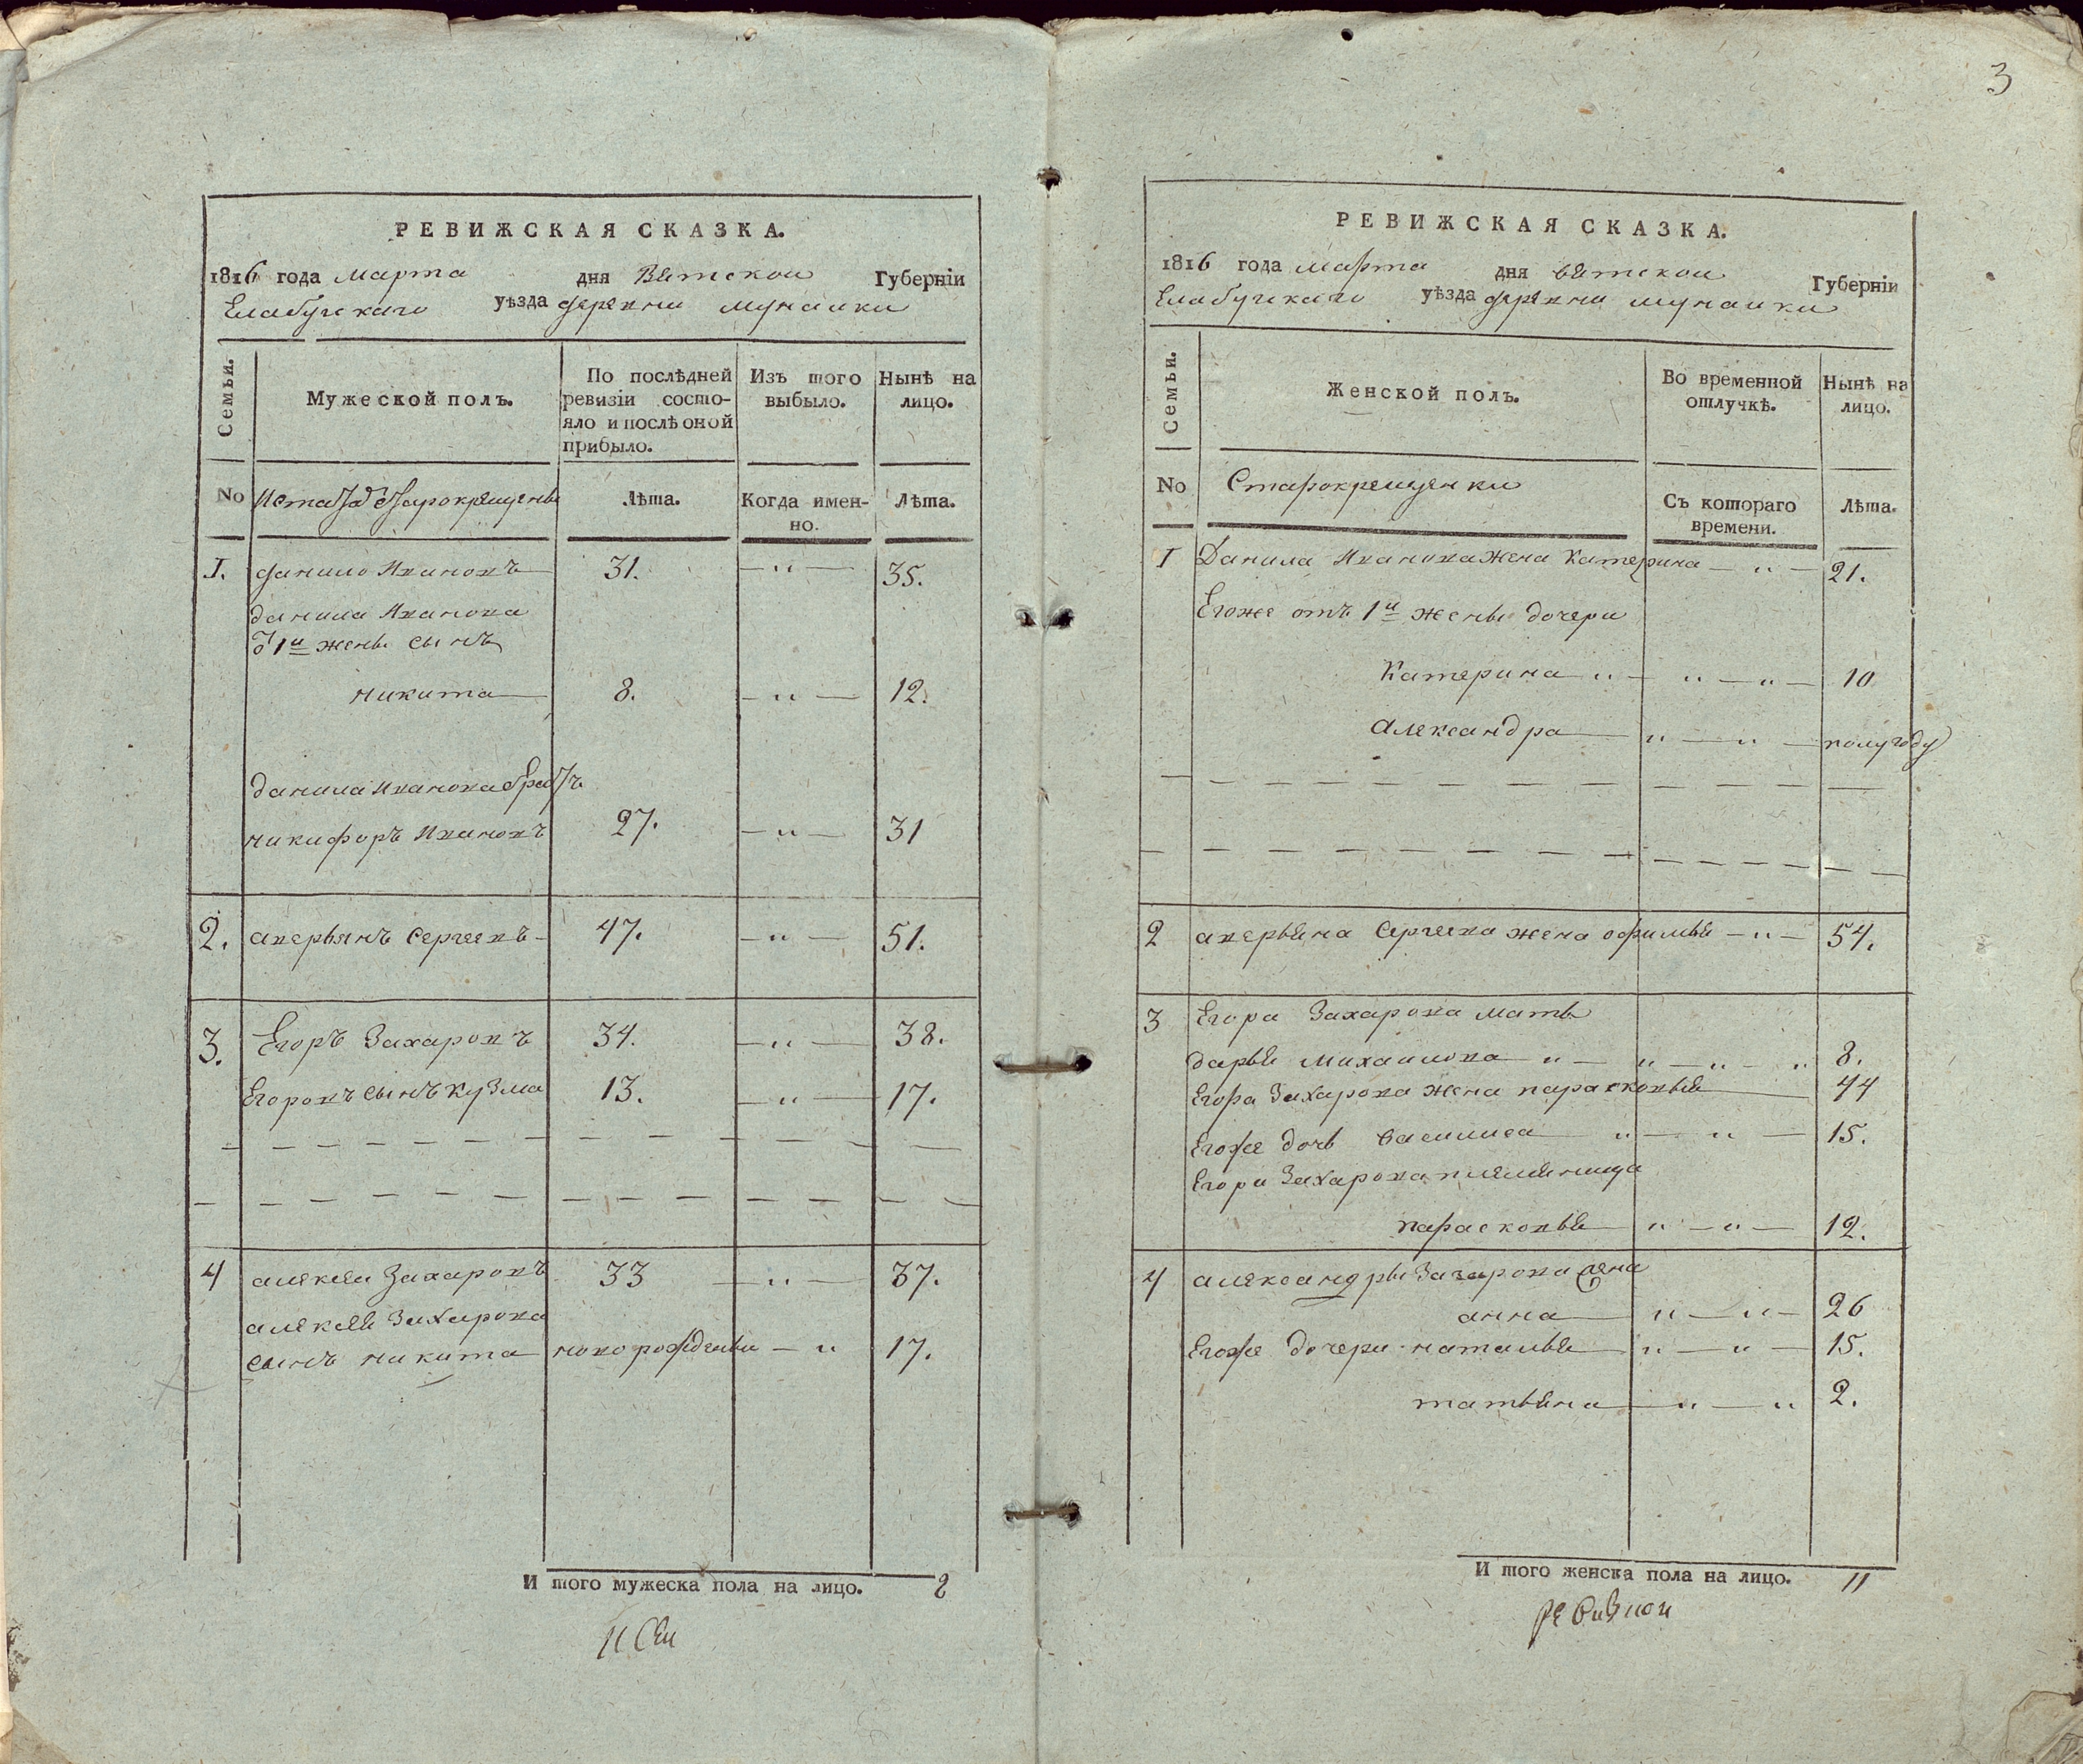 3
РЕВИЖСКАЯ СКАЗКА.
1816 года марта дня Вятской Губерніи
Елабугскаго уѣзда деревни мунайки
Семьи.
Мужеской полъ.
По послѣдней ревизіи состо-
яло и послѣ оной
прибыло.
Изъ того
выбыло.
Нынѣ на
лицо.
No
старокрещены
Лѣта.
Когда имен-
но.
Лѣта.
1. данило Ивановъ 31. — " — 35.
данила Иванова
от 1й жены сынъ
никита 8. — " — 12.
данила Иванова братъ
никифоръ Ивановъ 27. — " — 31
2. аверьянъ Сергеевъ 47. — " — 51.
3. Егоръ Захаровъ 34. — " — 38.
Егоровъ сынъ кузма 13. — " — 17.
4 алексей Захаровъ 33 — " — 37.
алексея Захарова
сынъ никита новорожденны — " 17.
И того мужеска пола на лицо. 8
РЕВИЖСКАЯ СКАЗКА.
1816 года марта дня вятской Губерніи
Елабугскаго уѣзда деревни мунайки
Семьи.
Женской полъ.
Во временной
отлучкѣ.
Нынѣ на
лицо.
No
Старокрещенки
Съ котораго
времени.
Лѣта.
1 Данила Иванова жена Катерина — " — 21.
Егоже отъ 1й жены дочери
Катерина " — " — " — 10
Александра " — " — полугоду
2 аверьяна Сергеева жена офимья — " — 54.
3 Егора Захарова мать
дарья михаилова " — " — " — " 8.
Егора Захарова жена парасковья 44
Егоже дочь василиса " — " — 15.
Егора Захарова племяница
парасковья " — " — 12.
4 александры Захарова жена
анна " — " — 26
Егоже дочери наталья " — " — 15.
татьяна " — " 2.
И того женска пола на лицо. 11
ревизской